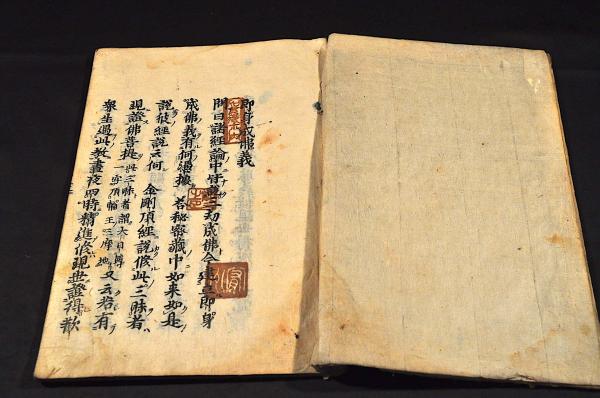 即身成佛義
問曰諸經論中皆說三劫成佛今建立即身
成佛義有何憑據答秘密藏中如来如是
說彼經說云何金剛頂經說修此三昧者
現證佛菩提此三昧者說大日尊一字頂輪王三摩地又云若有
衆生遇此教晝夜四時精進修現世證得歡